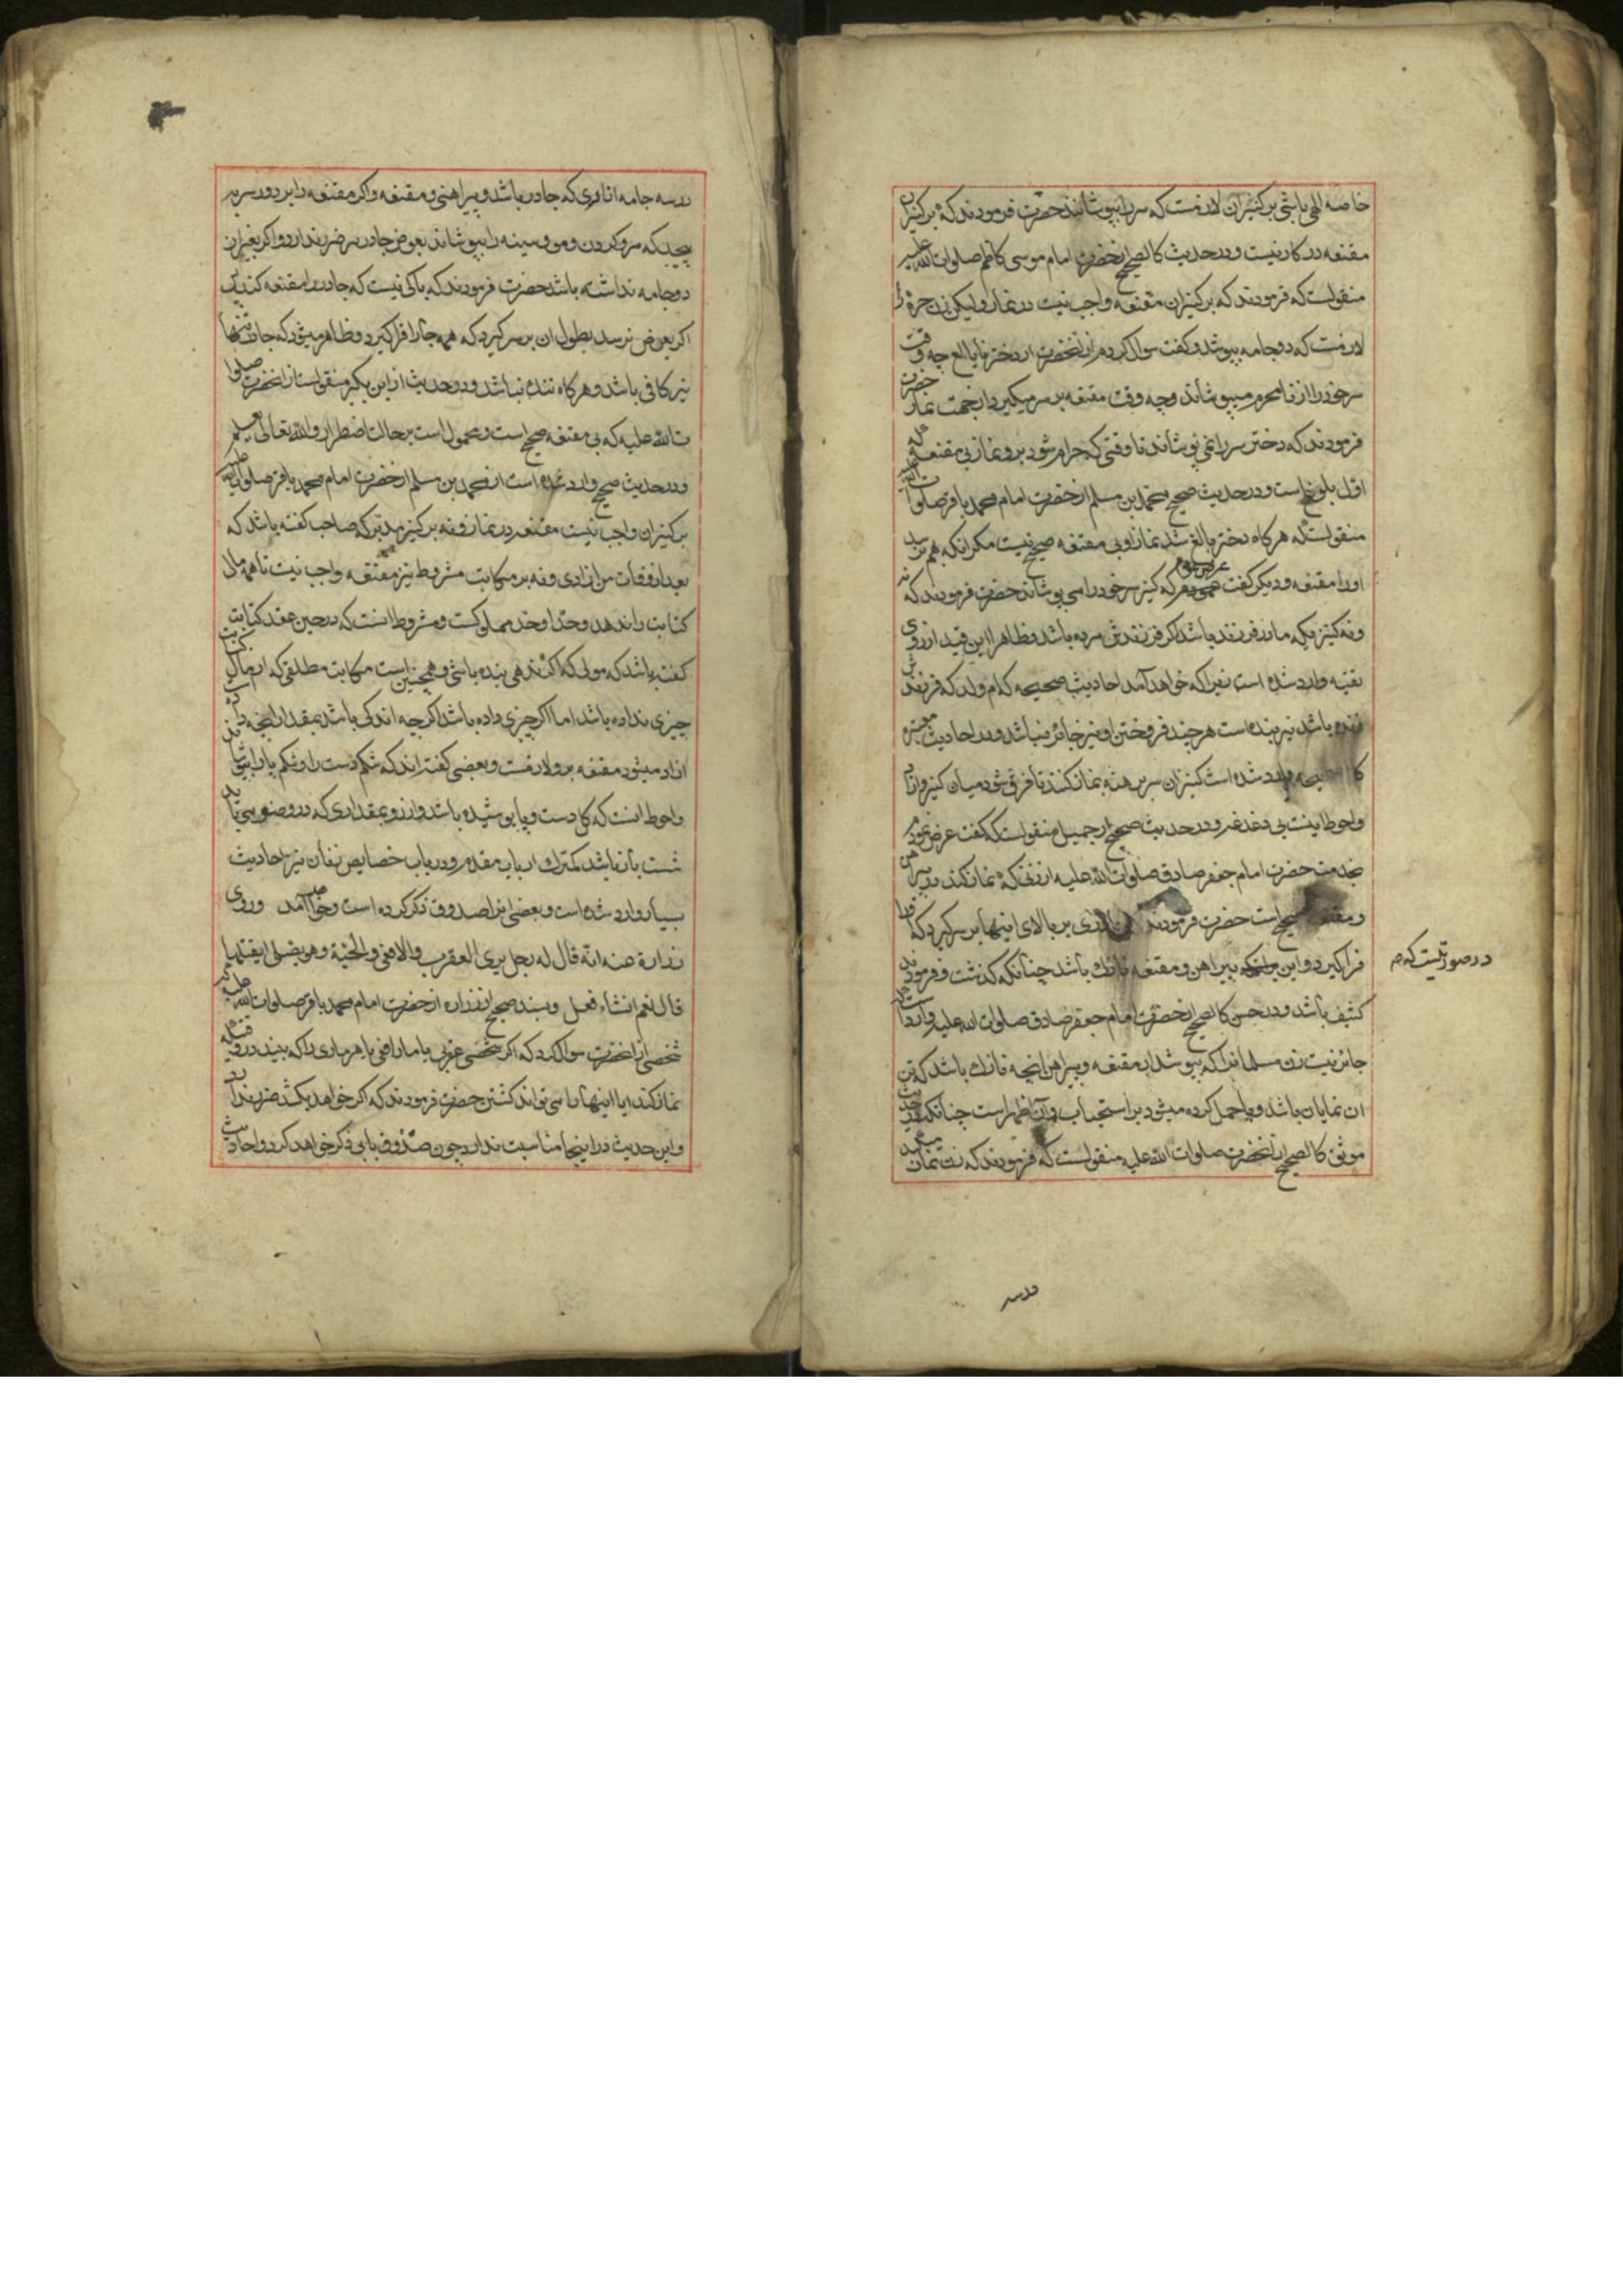 خاصه اللهی باشی بر کنیزان لازمست که سر را بپوشانند حضرت فرمودند که بر کنیزان
مقنعه در کار نیست و در حدیث کالصحیح از حضرت امام موسی کاظم صلوات الله علیه
منقولست که فرمودند که بر کنیزان مقنعه واجب نیست در نماز و لیکن زن حره را
لازمست که دو جامه بپوشد و گفت سوال کردم از انحضرت از دختر نابالغ چه وقت
سر خود را از نامحرم میپوشاند و چه وقت مقنعه بر سر میگیرد از جهت نماز حضرت
فرمودند که دختر سر را نمی پوشاند تا وقتی که حرام شود برو نماز بی مقنعه که
اول بلوغ است و در حدیث صحیح محمد بن مسلم از حضرت امام محمد باقر صلوات الله علیه
منقولست که هر گاه دختر بالغ شد نماز او بی مقنعه صحیح نیست مگر انکه بهم نرسد
او را مقنعه و دیگر گفت عرض نمودم که کنیز سر خود را می پوشاند حضرت فرمودند که نه
و نه کنیزیکه مادر فرزند باشد اگر فرزندش مرده باشد و ظاهرا این قید از روی
تقیه وارد شده است زیرا که خواهد آمد احادیث صحیحه که ام ولد که فرزندش
زنده باشد نیز بنده است هر چند فروختن او نیز جائز نباشد و در احادیث معتبره
کالصحیحه وارد شده است کنیزان سر برهنه نماز کنند تا فرق شود میان کنیز و ازاد
و احوط اینست بی دغدغه و در حدیث صحیح از جمیل منقولست که گفت عرض نمودم
بخدمت حضرت امام جعفر صادق صلوات الله علیه از زنی که نماز کند در پیراهن
و مقنعه صحیح است حضرت فرمودند چادری بر بالای اینها بر سر گیرد که او را
فرا گیرد و این پیراهن و مقنعه نازك باشد چنانکه گذشت و فرمودند
در صورتیست که م
کثیف باشد و در حسن کالصحیح از حضرت امام جعفر صادق صلوات الله علیه وارد است که
جائز نیست زن مسلمانرا که بپوشد از مقنعه و پیراهن انچه نازك باشد که تن
ان نمایان باشد و یا حمل کرده میشود بر استحباب و آن اظهر است چنانکه در حدیث
موثق کالصحیح از انحضرت صلوات الله علیه منقولست که فرمودند که زن نماز میکند
در سه جامه ازاری که چادر باشد و پیراهنی و مقنعه و اگر مقنعه را بر دور سر بر
پیچد که سر و گردن و مو و سینه را بپوشاند بعوض چادر سر ضرر ندارد و اگر بغیر از
دو جامه نداشته باشد حضرت فرمودند که باکی نیست که چادر را مقنعه کند پس
اگر بعرض نرسد بطول ان بر سر گیرد که همه جا را فرا گیرد و ظاهر میشود که چادر تنها
نیز کافی باشد و هر گاه تنك نباشد و در حدیث از ابن بکیر منقولست از انحضرت صلوا
ت الله علیه که بی مقنعه صحیح است و محمولست بر حالت اضطرار و الله تعالی یعلم
و در حدیث صحیح وارد شده است از محمد بن مسلم از حضرت امام محمد باقر صلوات الله علیه
بر کنیزان واجب نیست مقنعه در نماز و نه بر کنیز مدبر که صاحب گفته باشد که
بعد از وفات من ازادی و نه بر مکاتبت مشروط نیز مقنعه واجب نیست تا همه مال
کتابت را ندهد وحد او حد مملوکست و مشروط انست که در حین عقد کتابت
گفته باشد که مولی که اگر ندهی بنده باشی و همچنین است مکاتبت مطلقی که از مال کتابت
چیزی نداده باشد اما اگر چیزی داده باشد اگر چه اندکی باشد بمقدار انچه داده
ازاد میشود مقنعه برو لازمست و بعضی گفته اند که شکم دست را و شکم پا را بپوشاند
و احوط انست که کل دست و پا پوشیده باشد و از رو بمقداری که در وضو می باید
شست باز باشد کمترك از باب مقدمه و در باب خصایص زنان نیز احادیث
بسیار وارد شده است و بعضی انرا صدوق ذکر کرده است و خواهد آمد و روی
زرارة عنه انه قال له رجل یری العقرب والافعی والحیة وهو یصلی ایقتلها
قال نعم انشاء فعل و بسند صحیح از زراره از حضرت امام محمد باقر صلوات الله علیه که
شخصی از انحضرت سوال کرد که اگر شخصی عقربی یا مار افعی یا هر ماری را که بیند در وقتیکه
نماز کند ایا اینها را می تواند کشتن حضرت فرمودند که اگر خواهد بکشد ضرر ندارد
و این حدیث در اینجا مناسبت ندارد چون صدوق بابی ذکر خواهد کرد و احادیث